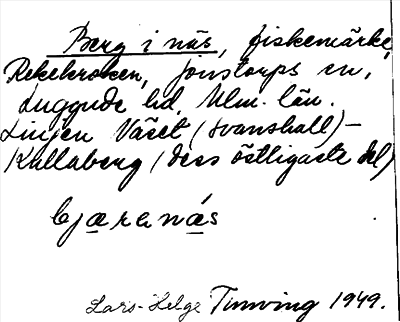 Berg i näs, fiskemärke,
Rekekroken, Jonstorps sn,
Luggude hd, Mlm. län.
Linjen Väset (Svanshall) –
Kullaberg (dess östligaste del)
bjærenás
Lars-Helge Tunving 1949.